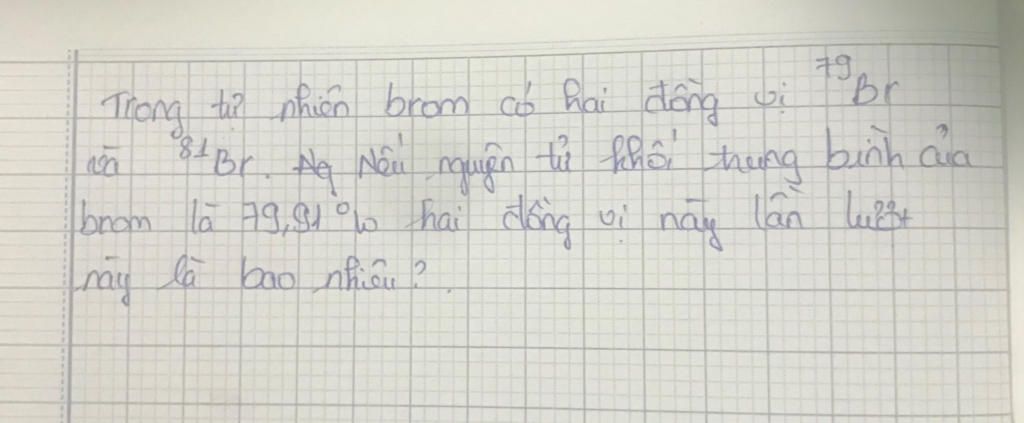 Trong tự nhiên brom có hai đồng vị ⁷⁹Br
và ⁸¹Br. Nếu nguyên tử khối trung bình của
brom là 79,91 % hai đồng vị này lần lượt
này là bao nhiêu?